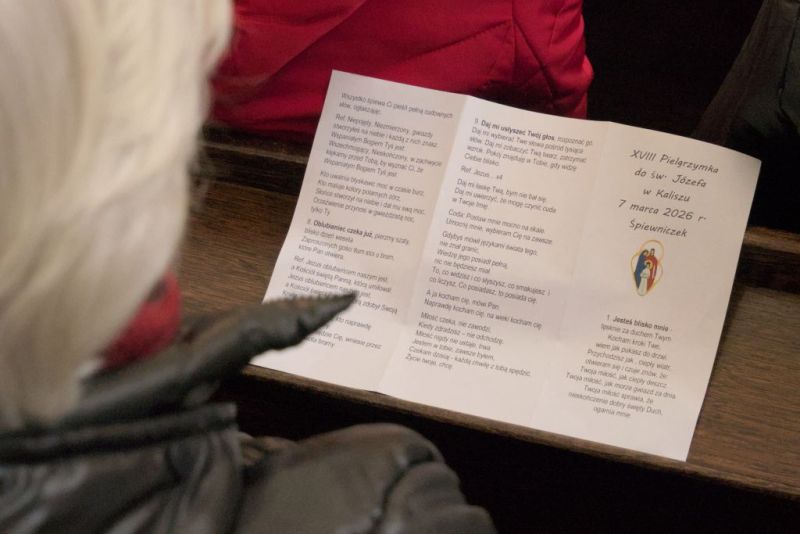 Wszystko śpiewa Ci pieśń pełną cudownych
słów, ogłaszając:
Ref: Niepojęty, Niezmierzony, gwiazdy
stworzyłeś na niebie i każdą z nich znasz.
Wspaniałym Bogiem Tyś jest
Wszechmogący, Nieskończony, w zachwycie
klękamy przed Tobą, by wyznać Ci, że
Wspaniałym Bogiem Tyś jest
Kto uwalnia błyskawic moc w czasie burz,
Kto maluje kolory polarnych zórz,
Słońce stworzył na niebie i dał mu swą moc,
Orzeźwienie przynosi w gwieździstą noc,
tylko Ty
8. Oblubieniec czeka już, pierzmy szaty,
blisko dzień wesela
Zaproszonych gości tłum stoi u bram,
które Pan otwiera.
Ref. Jezus oblubieńcem naszym jest,
a Kościół świętą Panną, którą umiłował
Jezus oblubieńcem naszym jest,
a Kościół zdobył Swoją
kto naprawdę
Cię, wniosę przez
bramy
9. Daj mi usłyszeć Twój głos, rozpoznać go.
Daj mi wybierać Twe słowa pośród tysiąca
słów. Daj mi zobaczyć Twą twarz, zatrzymać
wzrok. Pokój znajduję w Tobie, gdy widzę
Ciebie blisko.
Ref. Jezus... x4
Daj mi łaskę Twą, bym nie bał się.
Daj mi uwierzyć, że mogę czynić cuda
w Twoje Imię.
Coda: Postaw mnie mocno na skale.
Umocnij mnie, wybieram Cię na zawsze.
Gdybyś mówił językami świata tego,
nie znał granic,
Wiedzę jego posiadł pełną,
nic nie będziesz miał
To, co widzisz i co słyszysz, co smakujesz i
co liczysz. Co posiadasz, to posiada cię.
A ja kocham cię, mówi Pan.
Naprawdę kocham cię, na wieki kocham cię
Miłość czeka, nie zawodzi,
Kiedy zdradzasz – nie odchodzi.
Miłość nigdy nie ustaje, trwa
Jestem w tobie, zawsze byłem,
Czekam dzisiaj - każdą chwilę z tobą spędzić,
Życie twoje, chcę.
XVIII Pielgrzymka
do św. Józefa
w Kaliszu
7 marca 2026 r.
Śpiewniczek
1. Jesteś blisko mnie
tęsknię za duchem Twym
Kocham kroki Twe,
wiem jak pukasz do drzwi.
Przychodzisz jak, ciepły wiatr,
otwieram się i czuję znów, że:
Twoja miłość, jak ciepły deszcz
Twoja miłość, jak morze gwiazd za dnia
Twoja miłość sprawia, że
nieskończenie dobry święty Duch,
ogarnia mnie